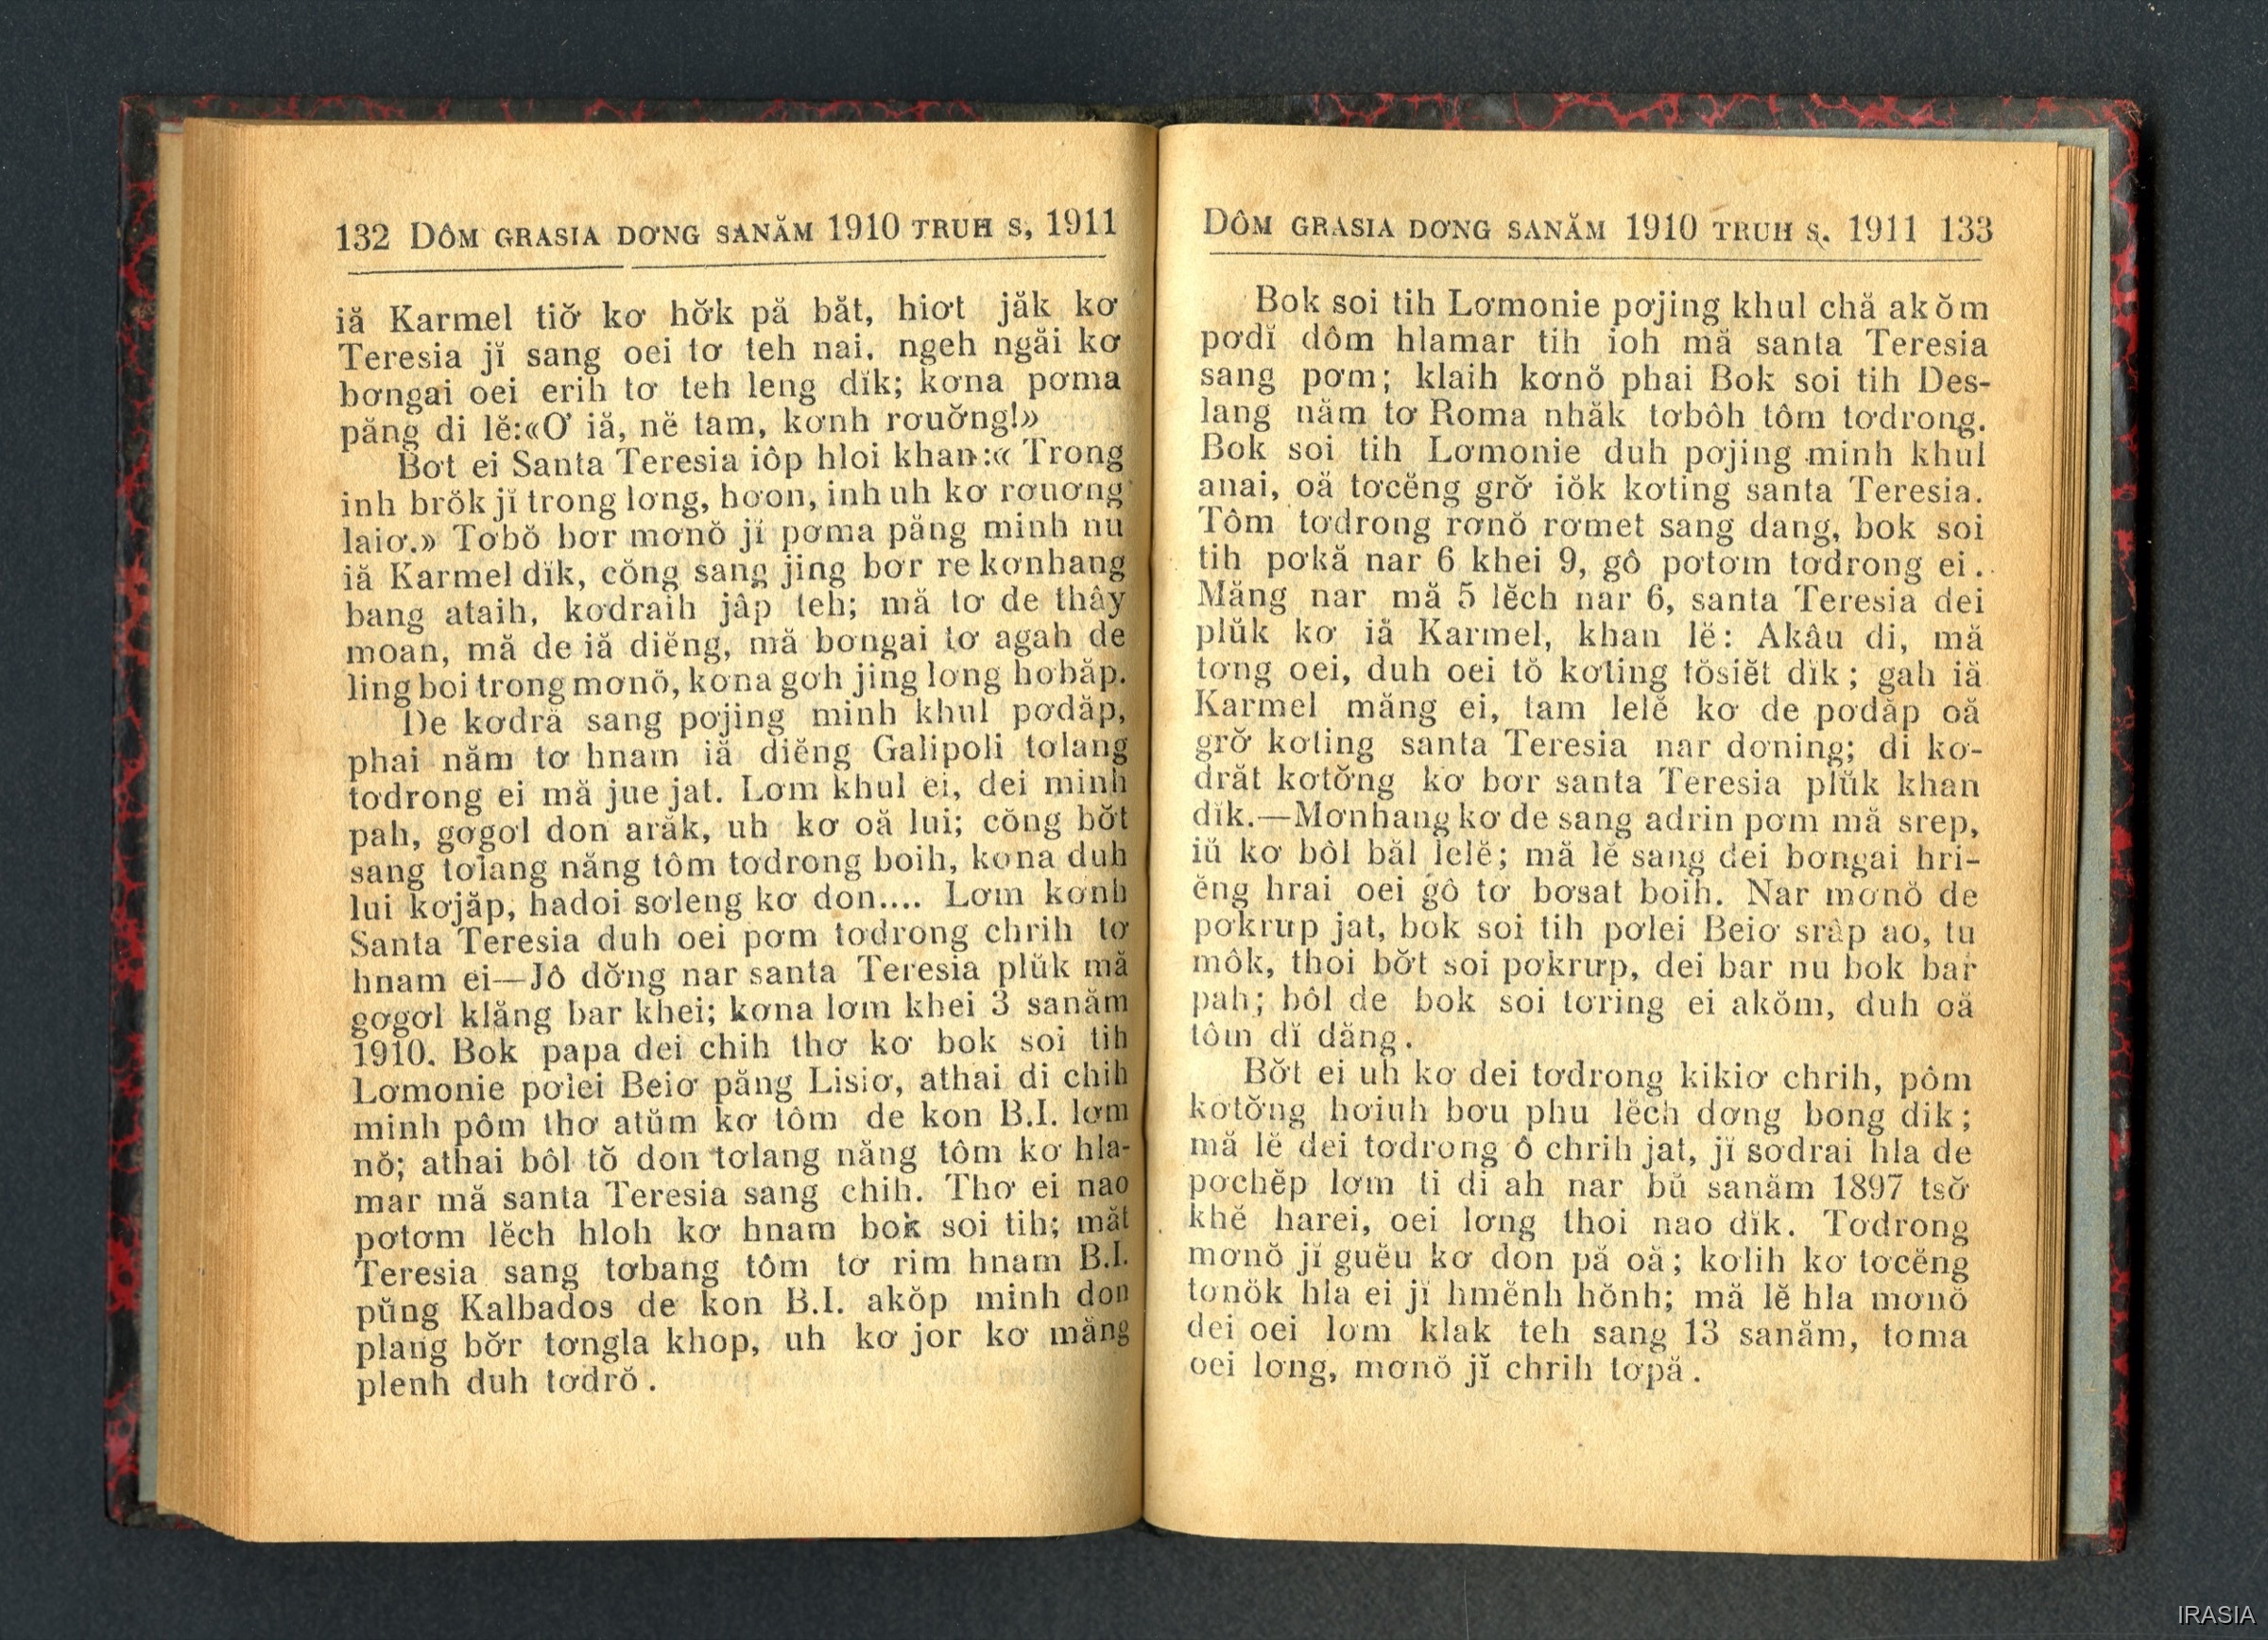 132 DÔM GRASIA DƠNG SANĂM 1910 TRUH S, 1911
iă Karmel tiơ̆ kơ hơ̆k pă băt, hiơt jăk kơ
Teresia jĭ sang oei tơ teh nai, ngeh ngăi kơ
bơngai oei erih tơ teh leng dĭk; kơna pơma
păng di lĕ:«Ơ iă, nĕ tam, kơnh rơuơ̆ng!»
Bơt ei Santa Teresia iôp hloi khan:« Trong
inh brŏk jĭ trong lơng, hơon, inh uh kơ rơuơng
laiơ.» Tơbŏ bơr mơnŏ jĭ pơma păng minh nu
iă Karmel dĭk, cŏng sang jing bơr re kơnhang
bang ataih, kơdraih jâp teh; mă tơ de thây
moan, mă de iă diĕng, mă bơngai tơ agah de
ling boi trong mơnŏ, kơna goh jing lơng hơbăp.
De kơdră sang pơjing minh khul pơdăp,
phai năm tơ hnam iă diĕng Galipoli tơlang
tơdrong ei mă jue jat. Lơm khul ei, dei minh
pah, gơgơl don arăk, uh kơ oă lui; cŏng bơ̆t
sang tơlang năng tôm tơdrong boih, kơna duh
lui kơjăp, hadoi sơleng kơ don.... Lơm kơnh
Santa Teresia duh oei pơm tơdrong chrih tơ
hnam ei—Jô dơ̆ng nar santa Teresia plŭk mă
gơgơl klăng bar khei; kơna lơm khei 3 sanăm
1910. Bok papa dei chih thơ kơ bok soi tih
Lơmonie pơlei Beiơ păng Lisiơ, athai di chih
minh pôm thơ atŭm kơ tôm de kon B.I. lơm
nŏ; athai bôl tŏ don tơlang năng tôm kơ hla-
mar mă santa Teresia sang chih. Thơ ei nao
pơtơm lĕch hloh kơ hnam bok soi tih; măt
Teresia sang tơbang tôm tơ rim hnam B.I.
pŭng Kalbados de kon B.I. akŏp minh don
plang bơ̆r tơngla khop, uh kơ jor kơ măng
plenh duh tơdrŏ.
DÔM GRASIA DƠNG SANĂM 1910 TRUH S. 1911 133
Bok soi tih Lơmonie pơjing khul chă akŏm
pơdĭ dôm hlamar tih ioh mă santa Teresia
sang pơm; klaih kơnŏ phai Bok soi tih Des-
lang năm tơ Roma nhăk tơbôh tôm tơdrong.
Bok soi tih Lơmonie duh pơjing minh khul
anai, oă tơcĕng grơ̆ iŏk kơting santa Teresia.
Tôm tơdrong rơnŏ rơmet sang dang, bok soi
tih pơkă nar 6 khei 9, gô pơtơm tơdrong ei.
Măng nar mă 5 lĕch nar 6, santa Teresia dei
plŭk kơ iă Karmel, khan lĕ: Akâu di, mă
tơng oei, duh oei tŏ kơting tŏsiĕt dĭk; gah iă
Karmel măng ei, tam lelĕ kơ de pơdăp oă
grơ̆ kơting santa Teresia nar dơning; di kơ-
drăt kơtơ̆ng kơ bơr santa Teresia plŭk khan
dĭk.—Mơnhang kơ de sang adrin pơm mă srep,
iŭ kơ bôl băl lelĕ; mă lĕ sang dei bơngai hri-
ĕng hrai oei gô tơ bơsat boih. Nar mơnŏ de
pơkrup jat, bok soi tih pơlei Beiơ srâp ao, tu
môk, thoi bơ̆t soi pơkrưp, dei bar nu bok bar
pah; bôl de bok soi tơring ei akŏm, duh oă
tôm dĭ dăng.
Bơ̆t ei uh kơ dei tơdrong kikiơ chrih, pôm
kơtơ̆ng hơiuh bơu phu lĕch dơng bong dik;
mă lĕ dei tơdrong ô chrih jat, jĭ sơdrai hla de
pơchĕp lơm ti di ah nar bŭ sanăm 1897 tsơ̆
khĕ harei, oei lơng thoi nao dĭk. Tơdrong
mơnŏ jĭ guĕu kơ don pă oă; kơlih kơ tơcĕng
tơnŏk hla ei jĭ hmĕnh hŏnh; mă lĕ hla mơnŏ
dei oei lơm klak teh sang 13 sanăm, toma
oei lơng, mơnŏ jĭ chrih tơpă.
IRASIA